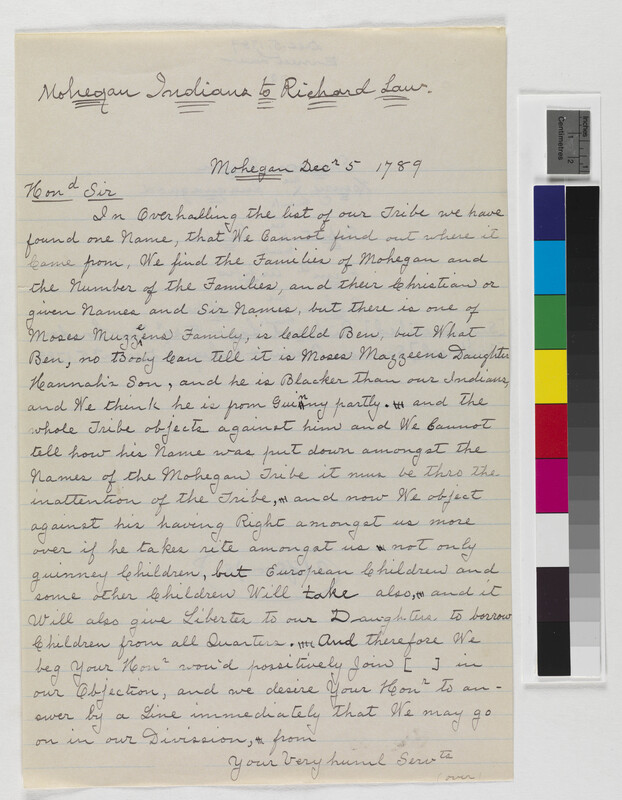 Mohegan Indians to Richard Law.
Mohegan Decr 5 1789
Hond Sir
In Overhalling the list of our Tribe we have
found one Name, that We Cannot find out where it
Came from, We find the Families of Mohegan and
the Number of the Families, and their Christian or
given Names and Sir Names, but there is one of
Moses Muzzeens Family, is Calld Ben, but What
Ben, no Body Can tell it is Moses Mazzeens Daughter
Hannah's Son, and he is Blacker than our Indians,
and We think he is from Guinny partly. and the
whole Tribe objects against him and We Cannot
tell how his Name was put down amongst the
Names of the Mohegan Tribe it mus be thro the
inattention of the Tribe, and now We object
against his having Right amongst us more
over if he takes rite amongst us not only
guinney Children, but European Children and
some other Children Will take also, and it
Will also give Liberter to our Daughters to borrow
Children from all Quarters. And therefore We
beg Your Honr wou'd possitively Join [ ] in
our Objection, and we desire Your Honr to an-
swer by a Line immediately that We may go
on in our Divission, from
Your Very huml Servts
(over)
Centimetres
inches
1
2